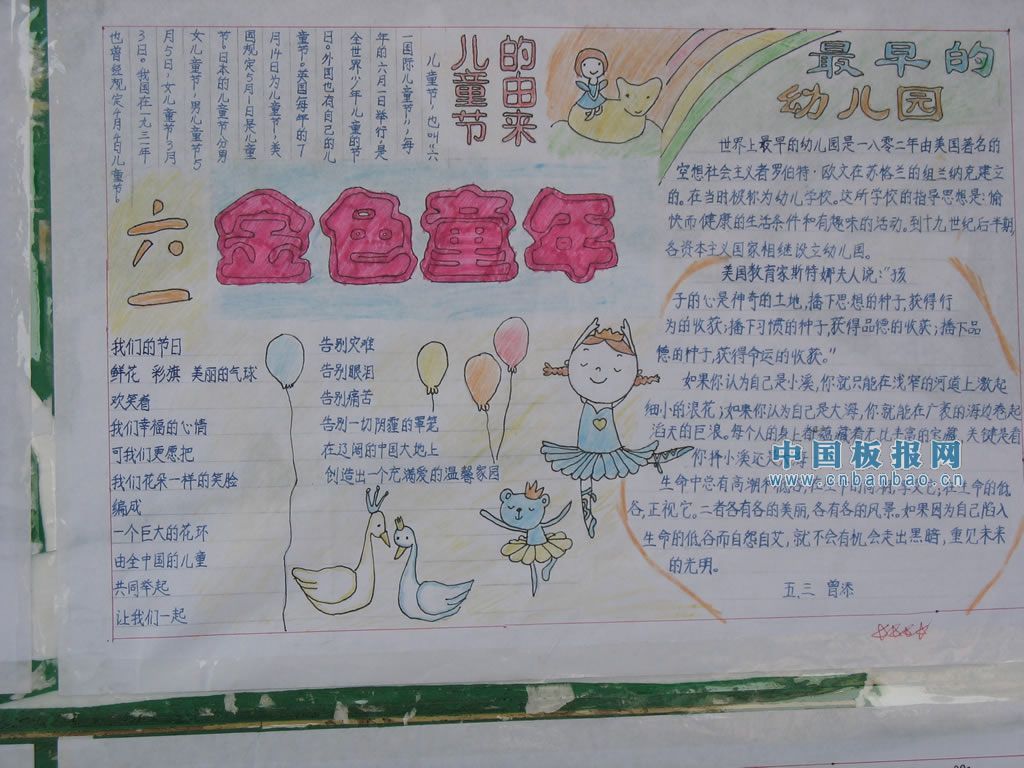 儿童节的由来
儿童节，也叫“六
一国际儿童节”，每
年的六月一日举行，是
全世界少年儿童的节
日。外国也有自己的儿
童节。英国每年的7
月14日为儿童节，美
国规定5月1日是儿童
节。日本的儿童节分男
女儿童节，男儿童节5
月5日，女儿童节3月
3日。我国在一九三一年
也曾经规定4月4日儿童节。
最早的
幼儿园
世界上最早的幼儿园是一八零二年由美国著名的
空想社会主义者罗伯特·欧文在苏格兰的纽兰纳克建立
的。在当时极称为幼儿学校。这所学校的指导思想是：愉
快而健康的生活条件和有趣味的活动。到十九世纪后半期，
各资本主义国家相继设立幼儿园。
六一
金色童年
我们的节日
鲜花 彩旗 美丽的气球
欢笑着
我们幸福的心情
可我们更愿把
我们花朵一样的笑脸
编成
一个巨大的花环
由全中国的儿童
共同举起
让我们一起
告别灾难
告别眼泪
告别痛苦
告别一切阴霾的笼罩
在辽阔的中国大地上
创造出一个充满爱的温馨家园
美国教育家斯特娜夫人说：“孩
子的心是神奇的土地，播下思想的种子，获得行
为的收获；播下习惯的种子，获得品德的收获；播下品
德的种子，获得命运的收获。”
如果你认为自己是小溪，你就只能在浅窄的河道上激起
细小的浪花；如果你认为自己是大海，你就能在广袤的海边卷起
滔天的巨浪。每个人的身上都蕴藏着无比丰富的宝藏，关键是看
你择小溪还大海
生命中总有高潮和低谷，在生命的低
谷，正视它。二者各有各的美丽，各有各的风景。如果因为自己陷入
生命的低谷而自怨自艾，就不会有机会走出黑暗，重见未来
的光明。
五.三 曾添
中国板报网
www.cnbanbao.cn